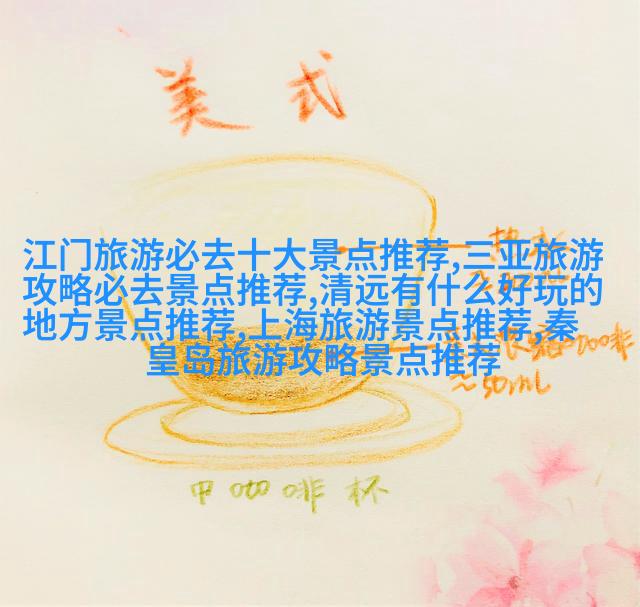 美式
江门旅游必去十大景点推荐,三亚旅游
攻略必去景点推荐,清远有什么好玩的
地方景点推荐,上海旅游景点推荐,秦
皇岛旅游攻略景点推荐
≈50mL
中咖啡杯